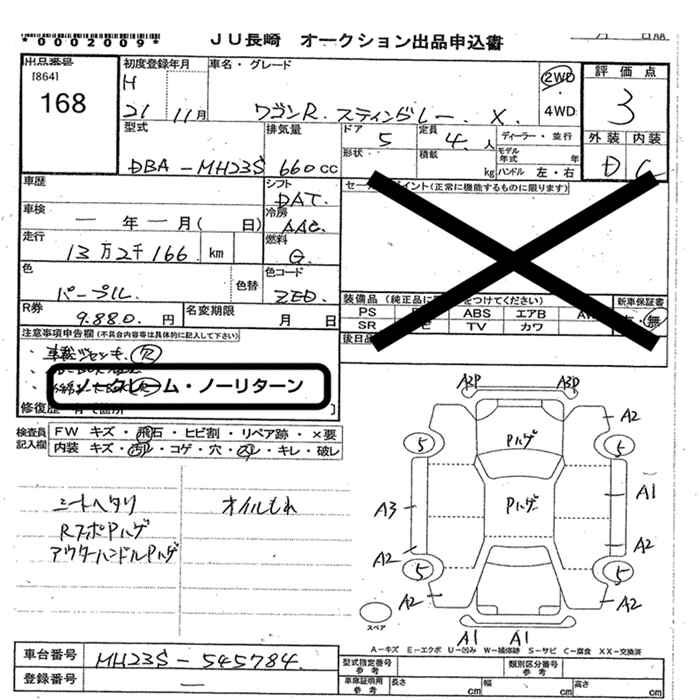 *0002009*
JU長崎 オークション出品申込書
月 日期
出品番号
[864]
168
初度登録年月
H
21 11月
車名・グレード
ワゴンR. スティングレー. X.
2WD
4WD
評価点
3
外装 内装
D C
型式
DBA-MH23S
排気量
660cc
ドア
5
定員
4.人
ディーラー・並行
形状
積載
kg
モデル年式 年
ハンドル 左・右
車歴
シフト
DAT.
セー ポイント(正常に機能するものに限ります)
車検
ー年ー月( 日)
冷房
AAC.
走行
13万2千166. km
燃料
G.
色
パープル.
色替
色コード
ZED.
R券
9.880. 円
名変期限
月 日
装備品(純正品に をつけてください)
PS
ABS
エアB
AW
SR
TV
カワ
新車保証書
有・無
後日品
注意事項申告欄(不具合内容等は具体的に記入して下さい)
・車載ジャッキ. 欠
ノークレーム・ノーリターン
検査員記入欄
FW キズ・飛石・ヒビ割・リペア跡・×要
内装 キズ・汚れ・コゲ・穴・スレ・キレ・破レ
シートヘタリ
オイルもれ
RスポPハゲ
アウターハンドルPハゲ
A3P A3P
Pハゲ
A2
5 5
Pハゲ
A1
A3
A2 A2
5 5
A2 A2
A1 A1
スペア
A-キズ E-エクボ U-凹み W-補修跡 S-サビ C-腐食 XX-交換済
車台番号
MH23S-545784.
登録番号
ー
型式指定番号
参考
類別区分番号
参考
車庫証明用
参考
長さ cm
幅 cm
高さ cm